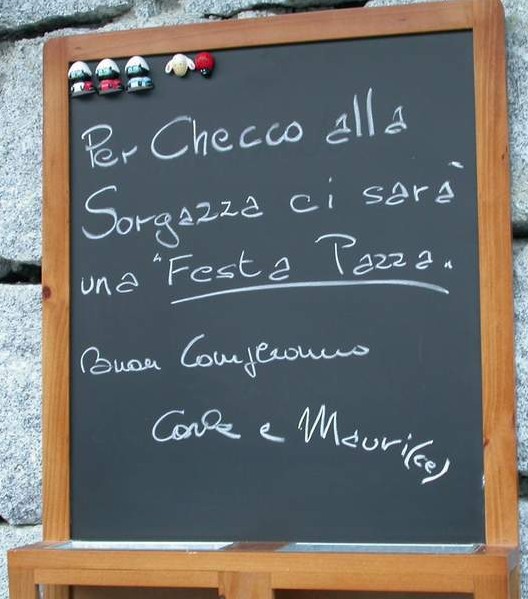 Per Checco alla
Sorgazza ci sarà
una "Festa Pazza"
Buon Compleanno
Carla e Mauri(ce)